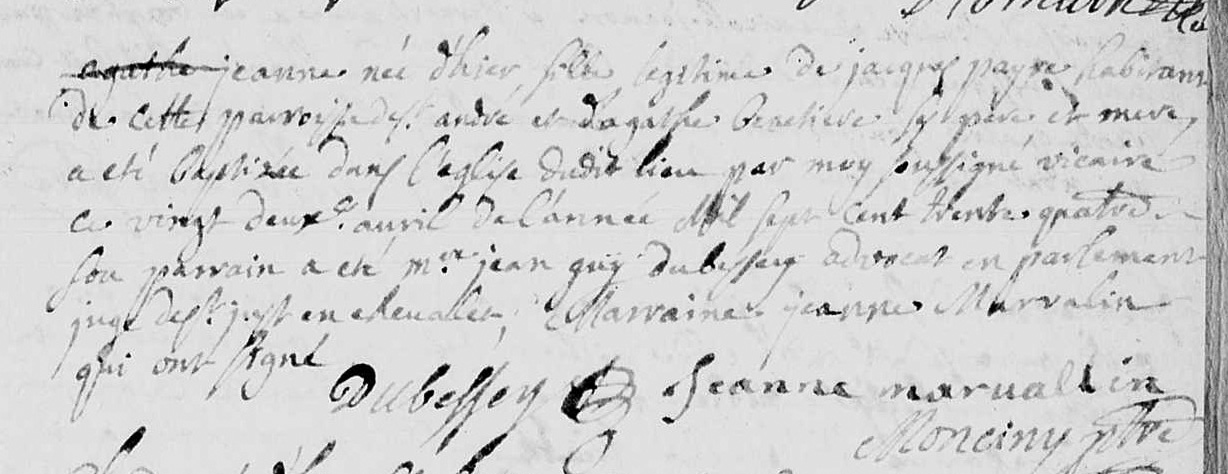 agathe jeanne née d'hier fille legitime de jacques payre habitant
de cette parroisse de st andré et d'agathe brechere ses pere et mere,
a eté baptisée dans l'eglise dudit lieu par moy soussigné vicaire
ce vingt deuxe avril de l'année Mil sept cent trente quatre
son parrain a eté mre jean guy dubessey advocat en parlement
juge de st just en chevalet, Marraine jeanne Marvalin
qui ont signé
Dubessey Jeanne marvallin
Monciny ptre